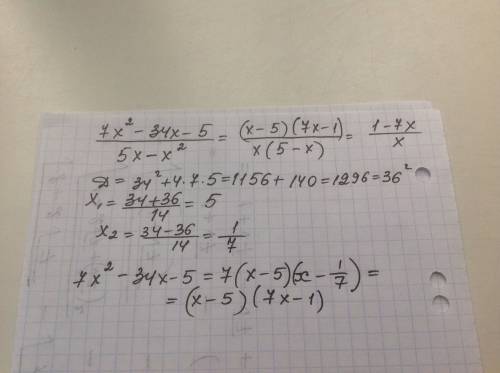 (7x² - 34x - 5)/(5x - x²) = ((x-5)(7x-1))/(x(5-x)) = (1-7x)/x
D = 34² + 4·7·5 = 1156 + 140 = 1296 = 36²
x₁ = (34+36)/14 = 5
x₂ = (34-36)/14 = 1/7
7x² - 34x - 5 = 7(x-5)(x - 1/7) =
= (x-5)(7x-1)